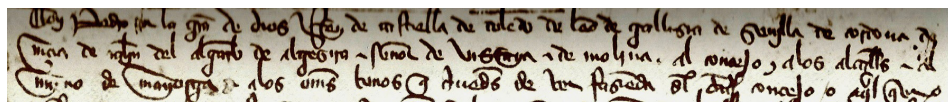 Don Pedro por la gra de dios Rey de castiella de toledo de leon de gallizia de Seuilla de cordoua de
murcia de jahen del algarbe de algezira e señor de Vizcaya e de molina. al conçejo e a los alcalls e al
merino de mayorga e a los oms bonos q auedes de ver fazienda del dicho conçejo o a ql quier